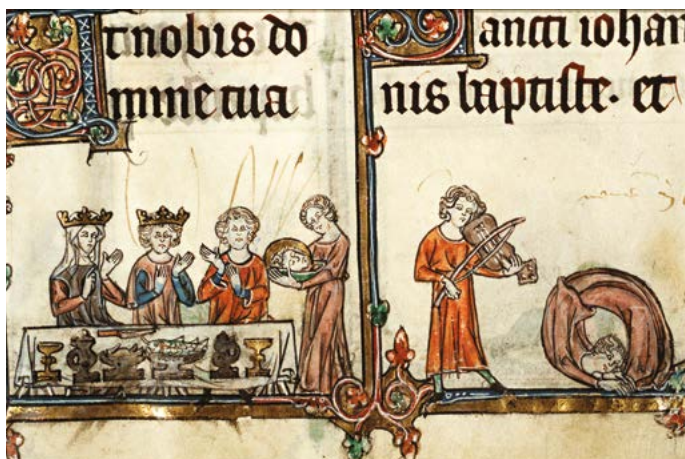 t nobis do
mine tua
Sancti iohan
nis baptiste. et